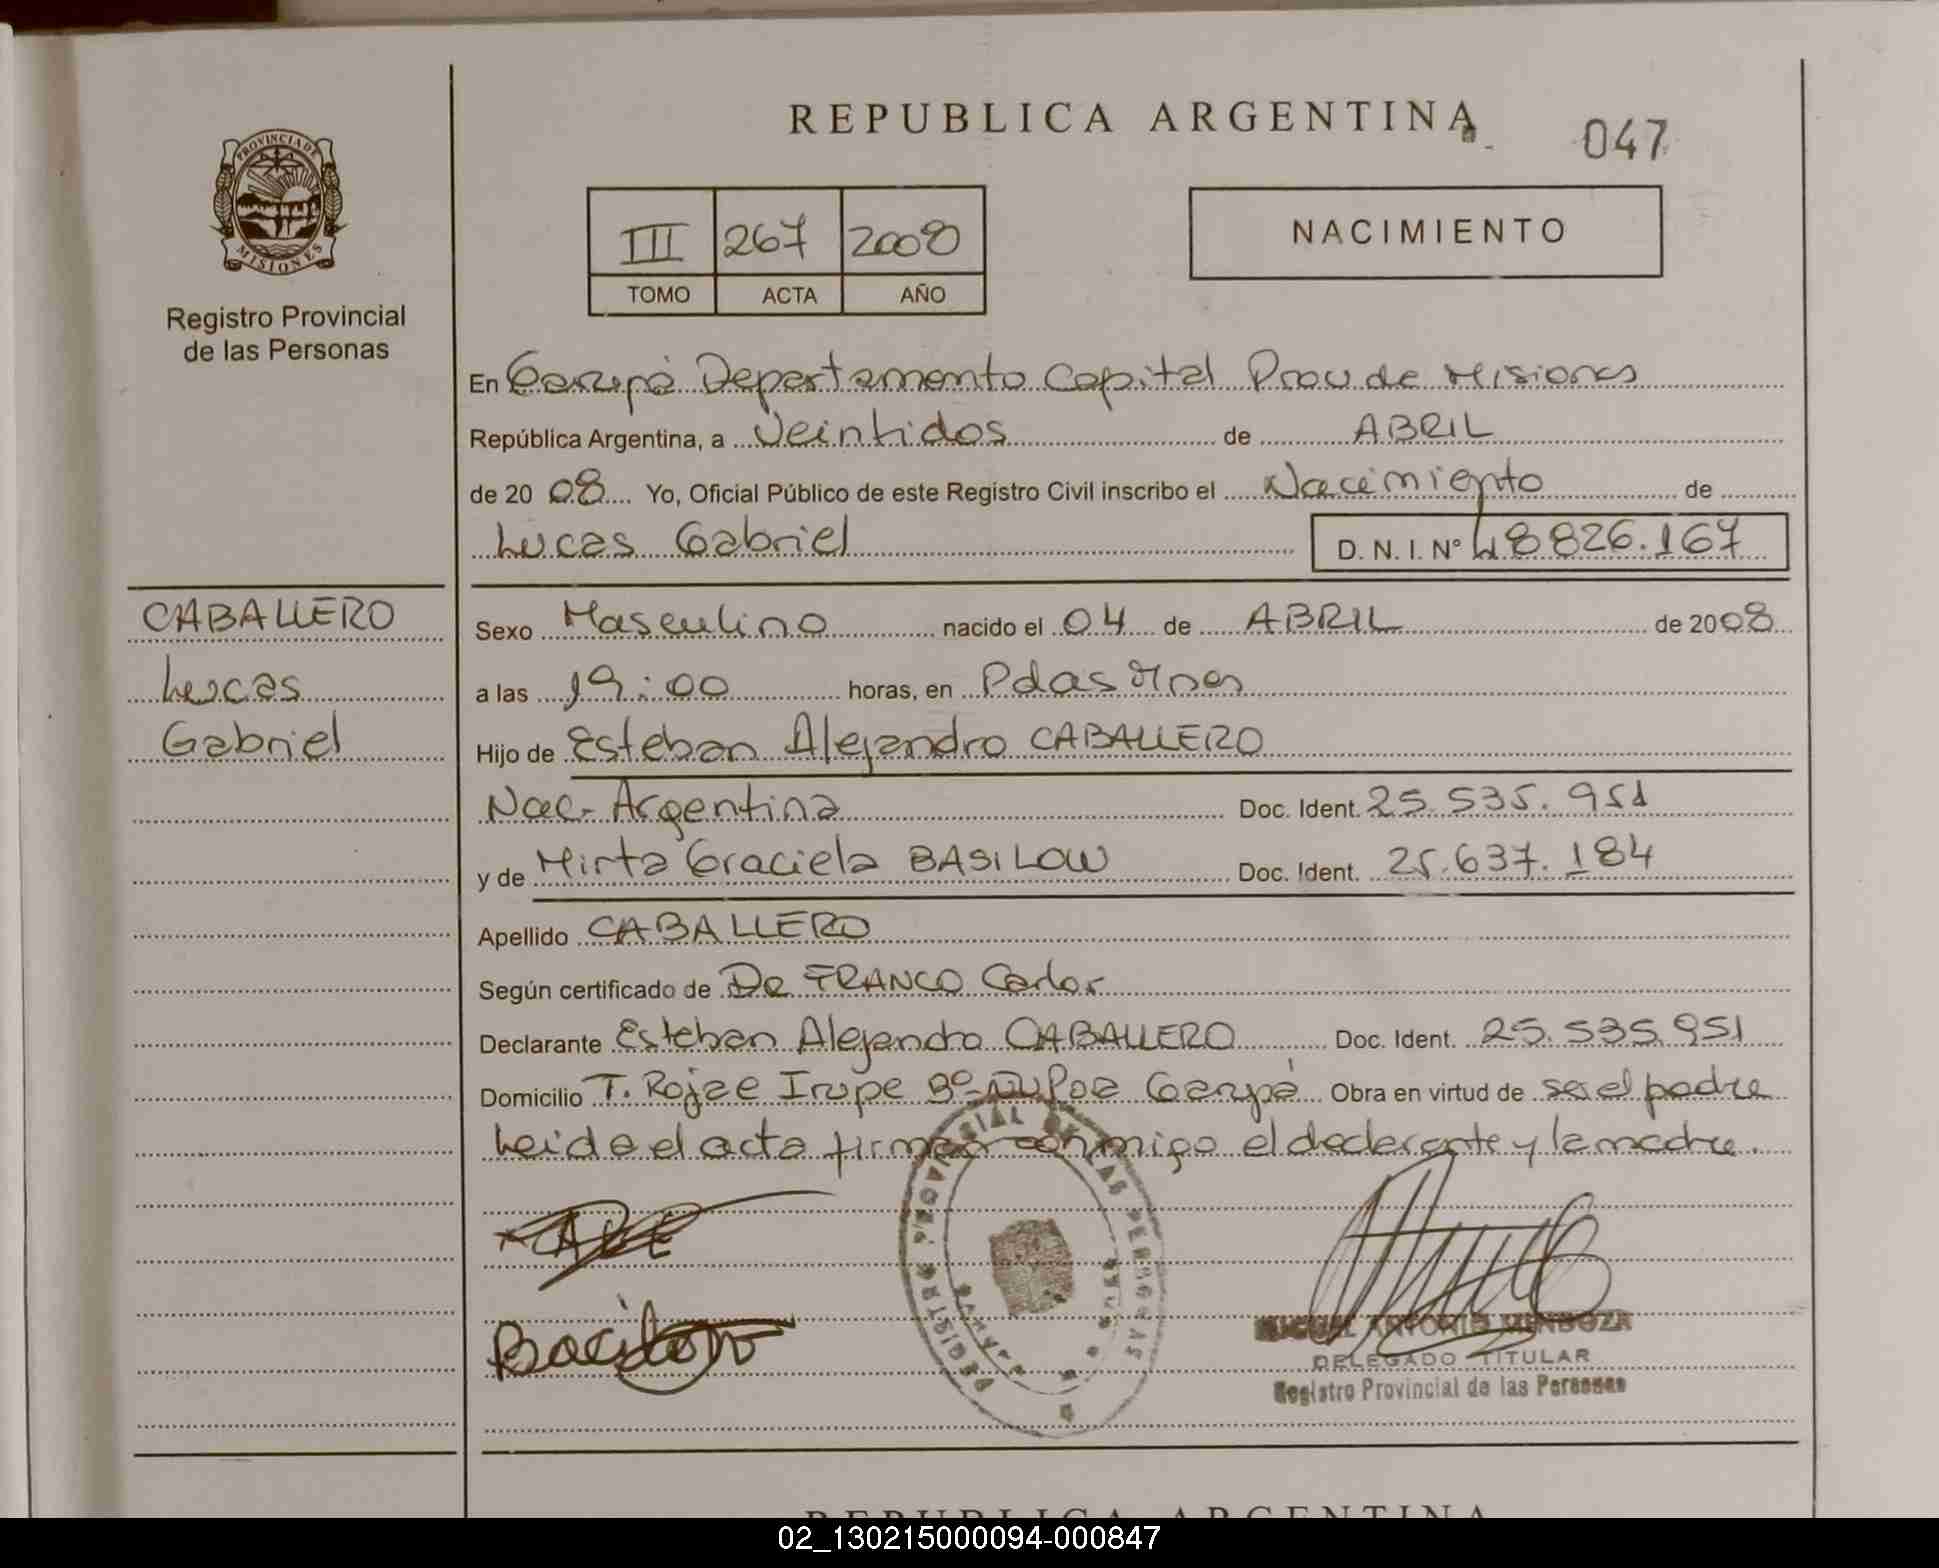 REPUBLICA ARGENTINA
047
PROVINCIA DE
MISIONES
Registro Provincial
de las Personas
III 267 2008
TOMO ACTA AÑO
NACIMIENTO
En Garupá Departamento Capital Prov de Misiones
República Argentina, a Veintidos de ABRIL
de 20 08 Yo, Oficial Público de este Registro Civil inscribo el Nacimiento de
Lucas Gabriel D. N. I. Nº 48826.167
CABALLERO
Lucas
Gabriel
Sexo Masculino nacido el 04 de ABRIL de 2008
a las 19:00 horas, en Pdas Mnes
Hijo de Esteban Alejandro CABALLERO
Nac. Argentina Doc. Ident. 25.535.951
y de Mirta Graciela BASILOW Doc. Ident. 25.637.184
Apellido CABALLERO
Según certificado de De FRANCO Carlos
Declarante Esteban Alejandro CABALLERO Doc. Ident. 25.535.951
Domicilio T. Rojae Irupe Bº Garupá Obra en virtud de ser el padre
Leida el acta firman conmigo el declarante y la madre.
REGISTRO PROVINCIAL DE LAS PERSONAS
MIGUEL ANTONIO MENDOZA
DELEGADO TITULAR
Registro Provincial de las Personas
REPUBLICA ARGENTINA
02_130215000094-000847